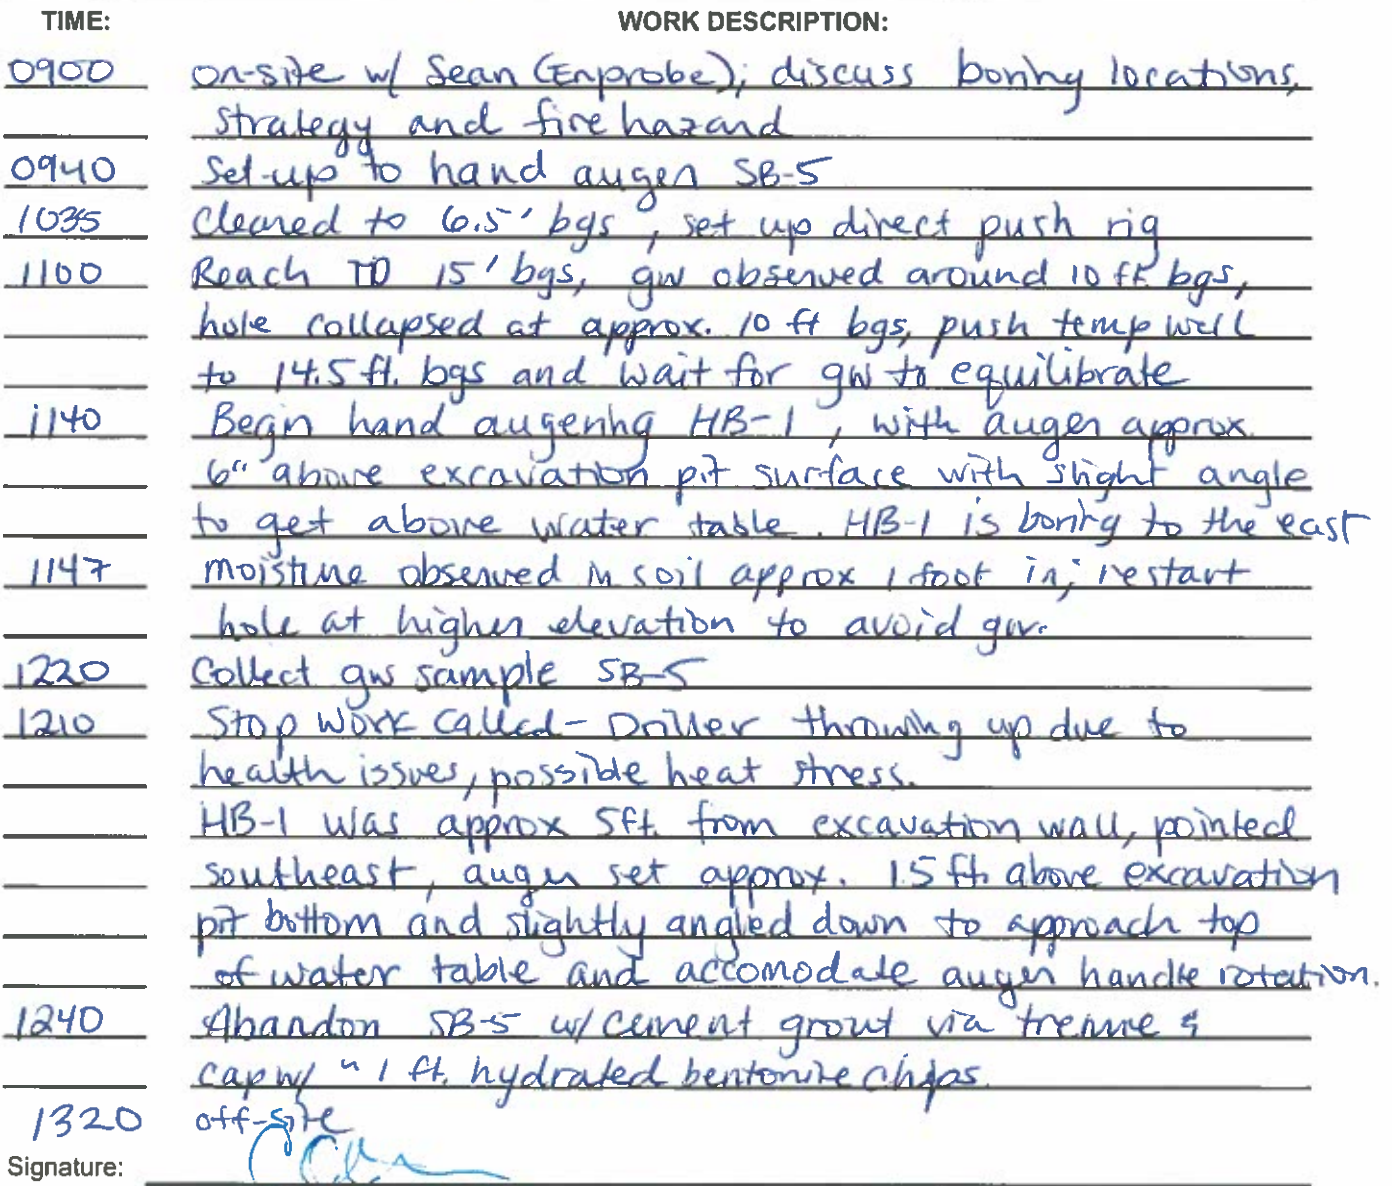 TIME: WORK DESCRIPTION:
0900 on-site w/ Sean (Enprobe); discuss boring locations,
strategy and fire hazard
0940 Set-up to hand auger SB-5
1035 Cleared to 6.5' bgs, set up direct push rig
1100 Reach TD 15' bgs, gw observed around 10 ft bgs,
hole collapsed at approx. 10 ft bgs, push temp well
to 14.5 ft. bgs and wait for gw to equilibrate
1140 Begin hand augering HB-1, with auger approx.
6" above excavation pit surface with slight angle
to get above water table. HB-1 is boring to the east
1147 moisture observed in soil approx 1 foot in; restart
hole at higher elevation to avoid gw.
1220 Collect gw sample SB-5
1210 Stop Work Called - Driller throwing up due to
health issues, possible heat stress.
HB-1 was approx 5ft. from excavation wall, pointed
southeast, auger set approx. 1.5 ft. above excavation
pit bottom and slightly angled down to approach top
of water table and accomodate auger handle rotation.
1240 Abandon SB-5 w/ cement grout via tremie &
cap w/ ~ 1 ft. hydrated bentonite chips.
1320 off-site
Signature: